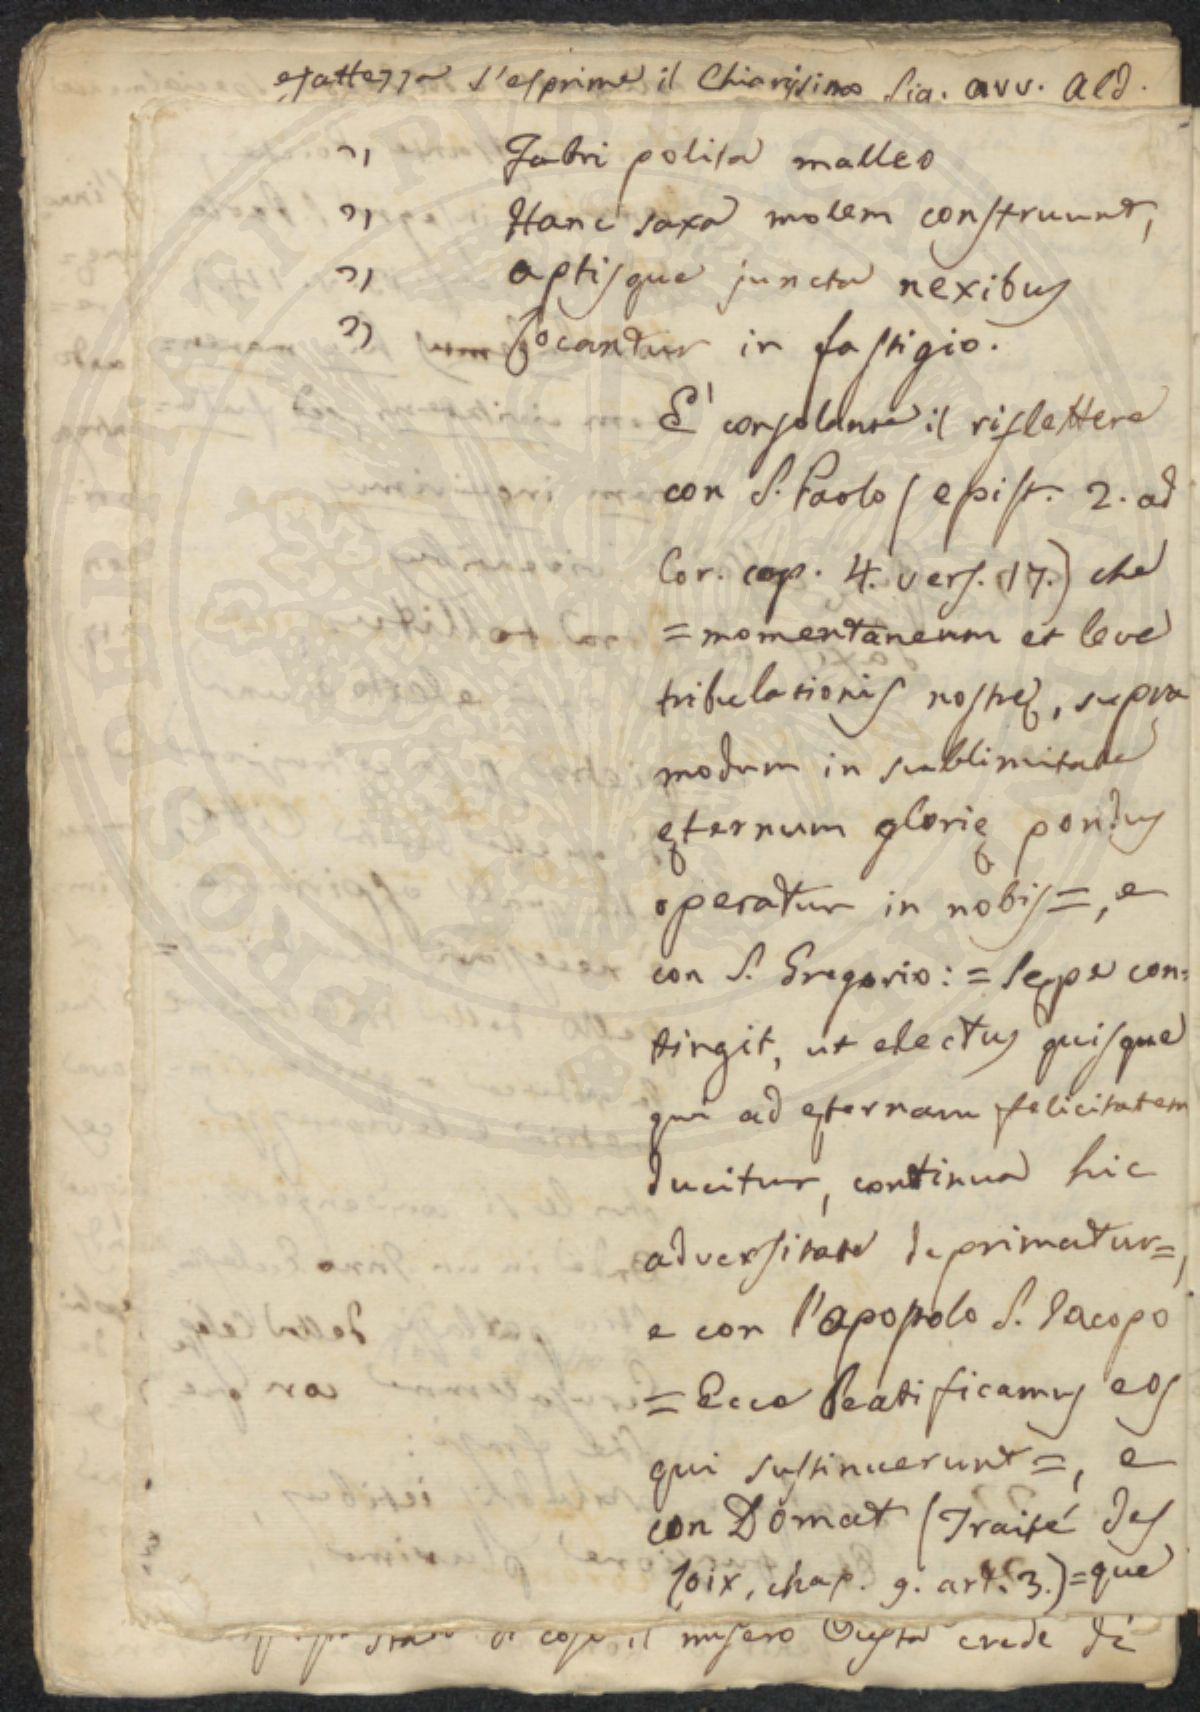 esattezza s'esprime il Chiarissimo Sig. avv. Ald.
" Fabri polita malleo
" Hanc saxa molem construunt,
" aptisque juncta nexibus
" Locantur in fastigio.
E' consolante il riflettere
con S. Paolo (epist. 2. ad
Cor. cap. 4. vers. 17.) che
= momentaneum et leve
tribulationis nostrę, supra
modum in sublimitate
ęternum glorię pondus
operatur in nobis =, e
con S. Gregorio: = Sępe con=
tingit, ut electus quisque
qui ad ęternam felicitatem
ducitur, continua hic
adversitate deprimatur =,
e con l'apostolo S. Jacopo
= Ecce Beatificamus eos
qui sustinuerunt =, e
con Domat (Traité des
loix, chap. 9. art. 3.) = que
stato di cose il misero crede di